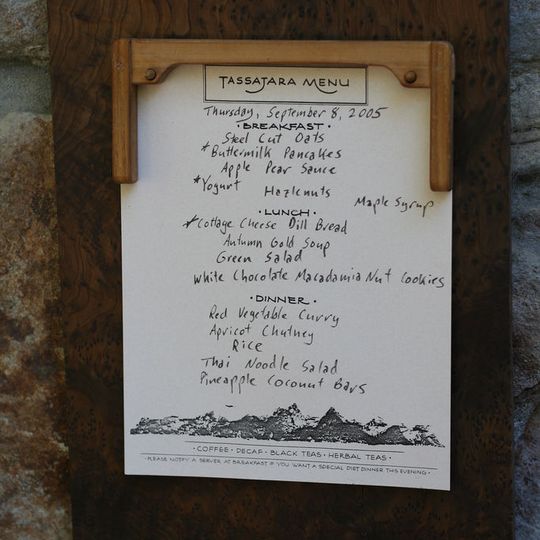 TASSAJARA MENU
Thursday, September 8, 2005
· BREAKFAST ·
Steel Cut Oats
*Buttermilk Pancakes
Apple Pear Sauce
*Yogurt Hazlenuts Maple Syrup
· LUNCH ·
*Cottage Cheese Dill Bread
Autumn Gold Soup
Green Salad
White Chocolate Macadamia Nut Cookies
· DINNER ·
Red Vegetable Curry
Apricot Chutney
Rice
Thai Noodle Salad
Pineapple Coconut Bars
· COFFEE · DECAF · BLACK TEAS · HERBAL TEAS ·
· PLEASE NOTIFY A SERVER AT BREAKFAST IF YOU WANT A SPECIAL DIET DINNER THIS EVENING ·